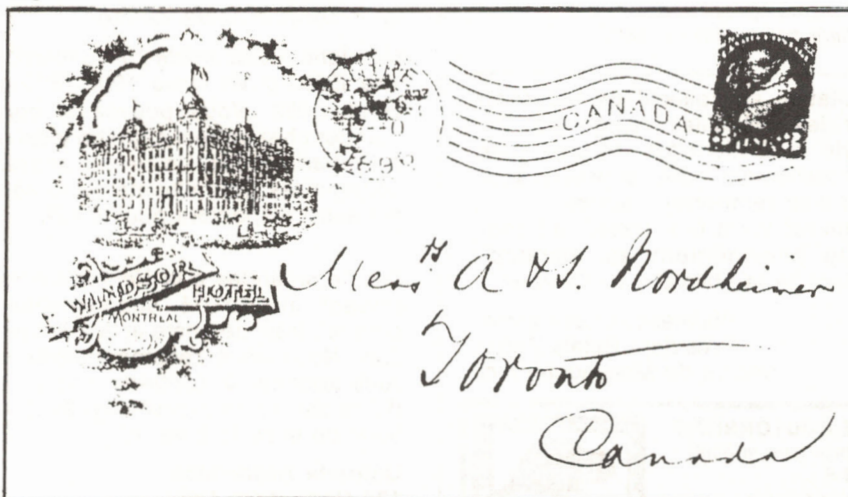 WINDSOR
HOTEL
MONTREAL
CANADA
Mess<sup>rs</sup> A & S. Nordheimer
Toronto
Canada